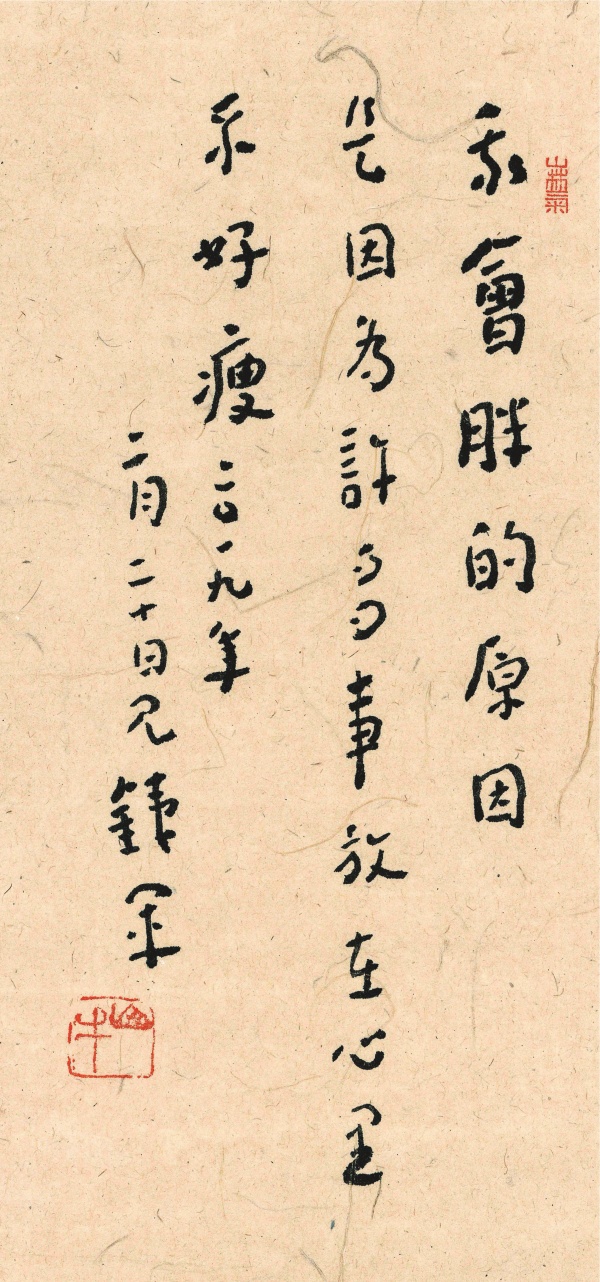 我會胖的原因
是因為許多事放在心里
不好瘦 二〇一九年
二月二十日